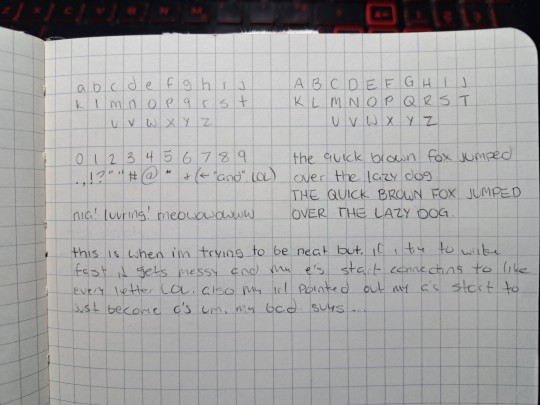 a b c d e f g h i j
k l m n o p q r s t
u v w x y z
A B C D E F G H I J
K L M N O P Q R S T
U V W X Y Z
0 1 2 3 4 5 6 7 8 9
.,!?""# @ * +(←"and", LOL)
nia! luvring! meowowowww
the quick brown fox jumped
over the lazy dog
THE QUICK BROWN FOX JUMPED
OVER THE LAZY DOG.
this is when im trying to be neat but, if i try to write
fast it gets messy and my e's start connecting to like
every letter LOL. also my irl pointed out my a's start to
just become c's um, my bad guys...